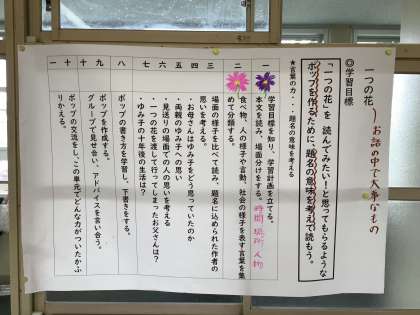 一つの花 ～お話の中で大事なもの
◎学習目標
「一つの花」を 読んでみたい！と思ってもらるような
ポップを作るために、題名の意味を考えて読もう。
★言葉の力・・・題名の意味を考える
一 学習目標を知り、学習計画を立てる。
本文を読み、場面分けをする。時間 場所 人物
二 食べ物、人の様子や言動、社会の様子を表す言葉を集
めて分類する。
三 場面の様子を比べて読み、題名に込められた作者の
思いを考える。
四 ・お母さんはゆみ子をどう思っていたのか
五 ・両親のゆみ子への思い
六 ・見送りの場面での人の思いを考える
・一つの花を渡して行ってしまったお父さんは？
七 ・ゆみ子の十年後の生活は？
八 ポップの書き方を学習し、下書きをする。
九 ポップを作成する。
十 グループで見せ合い、アドバイスを言い合う。
十一 ポップの交流をし、この単元でどんな力がついたかふ
りかえる。